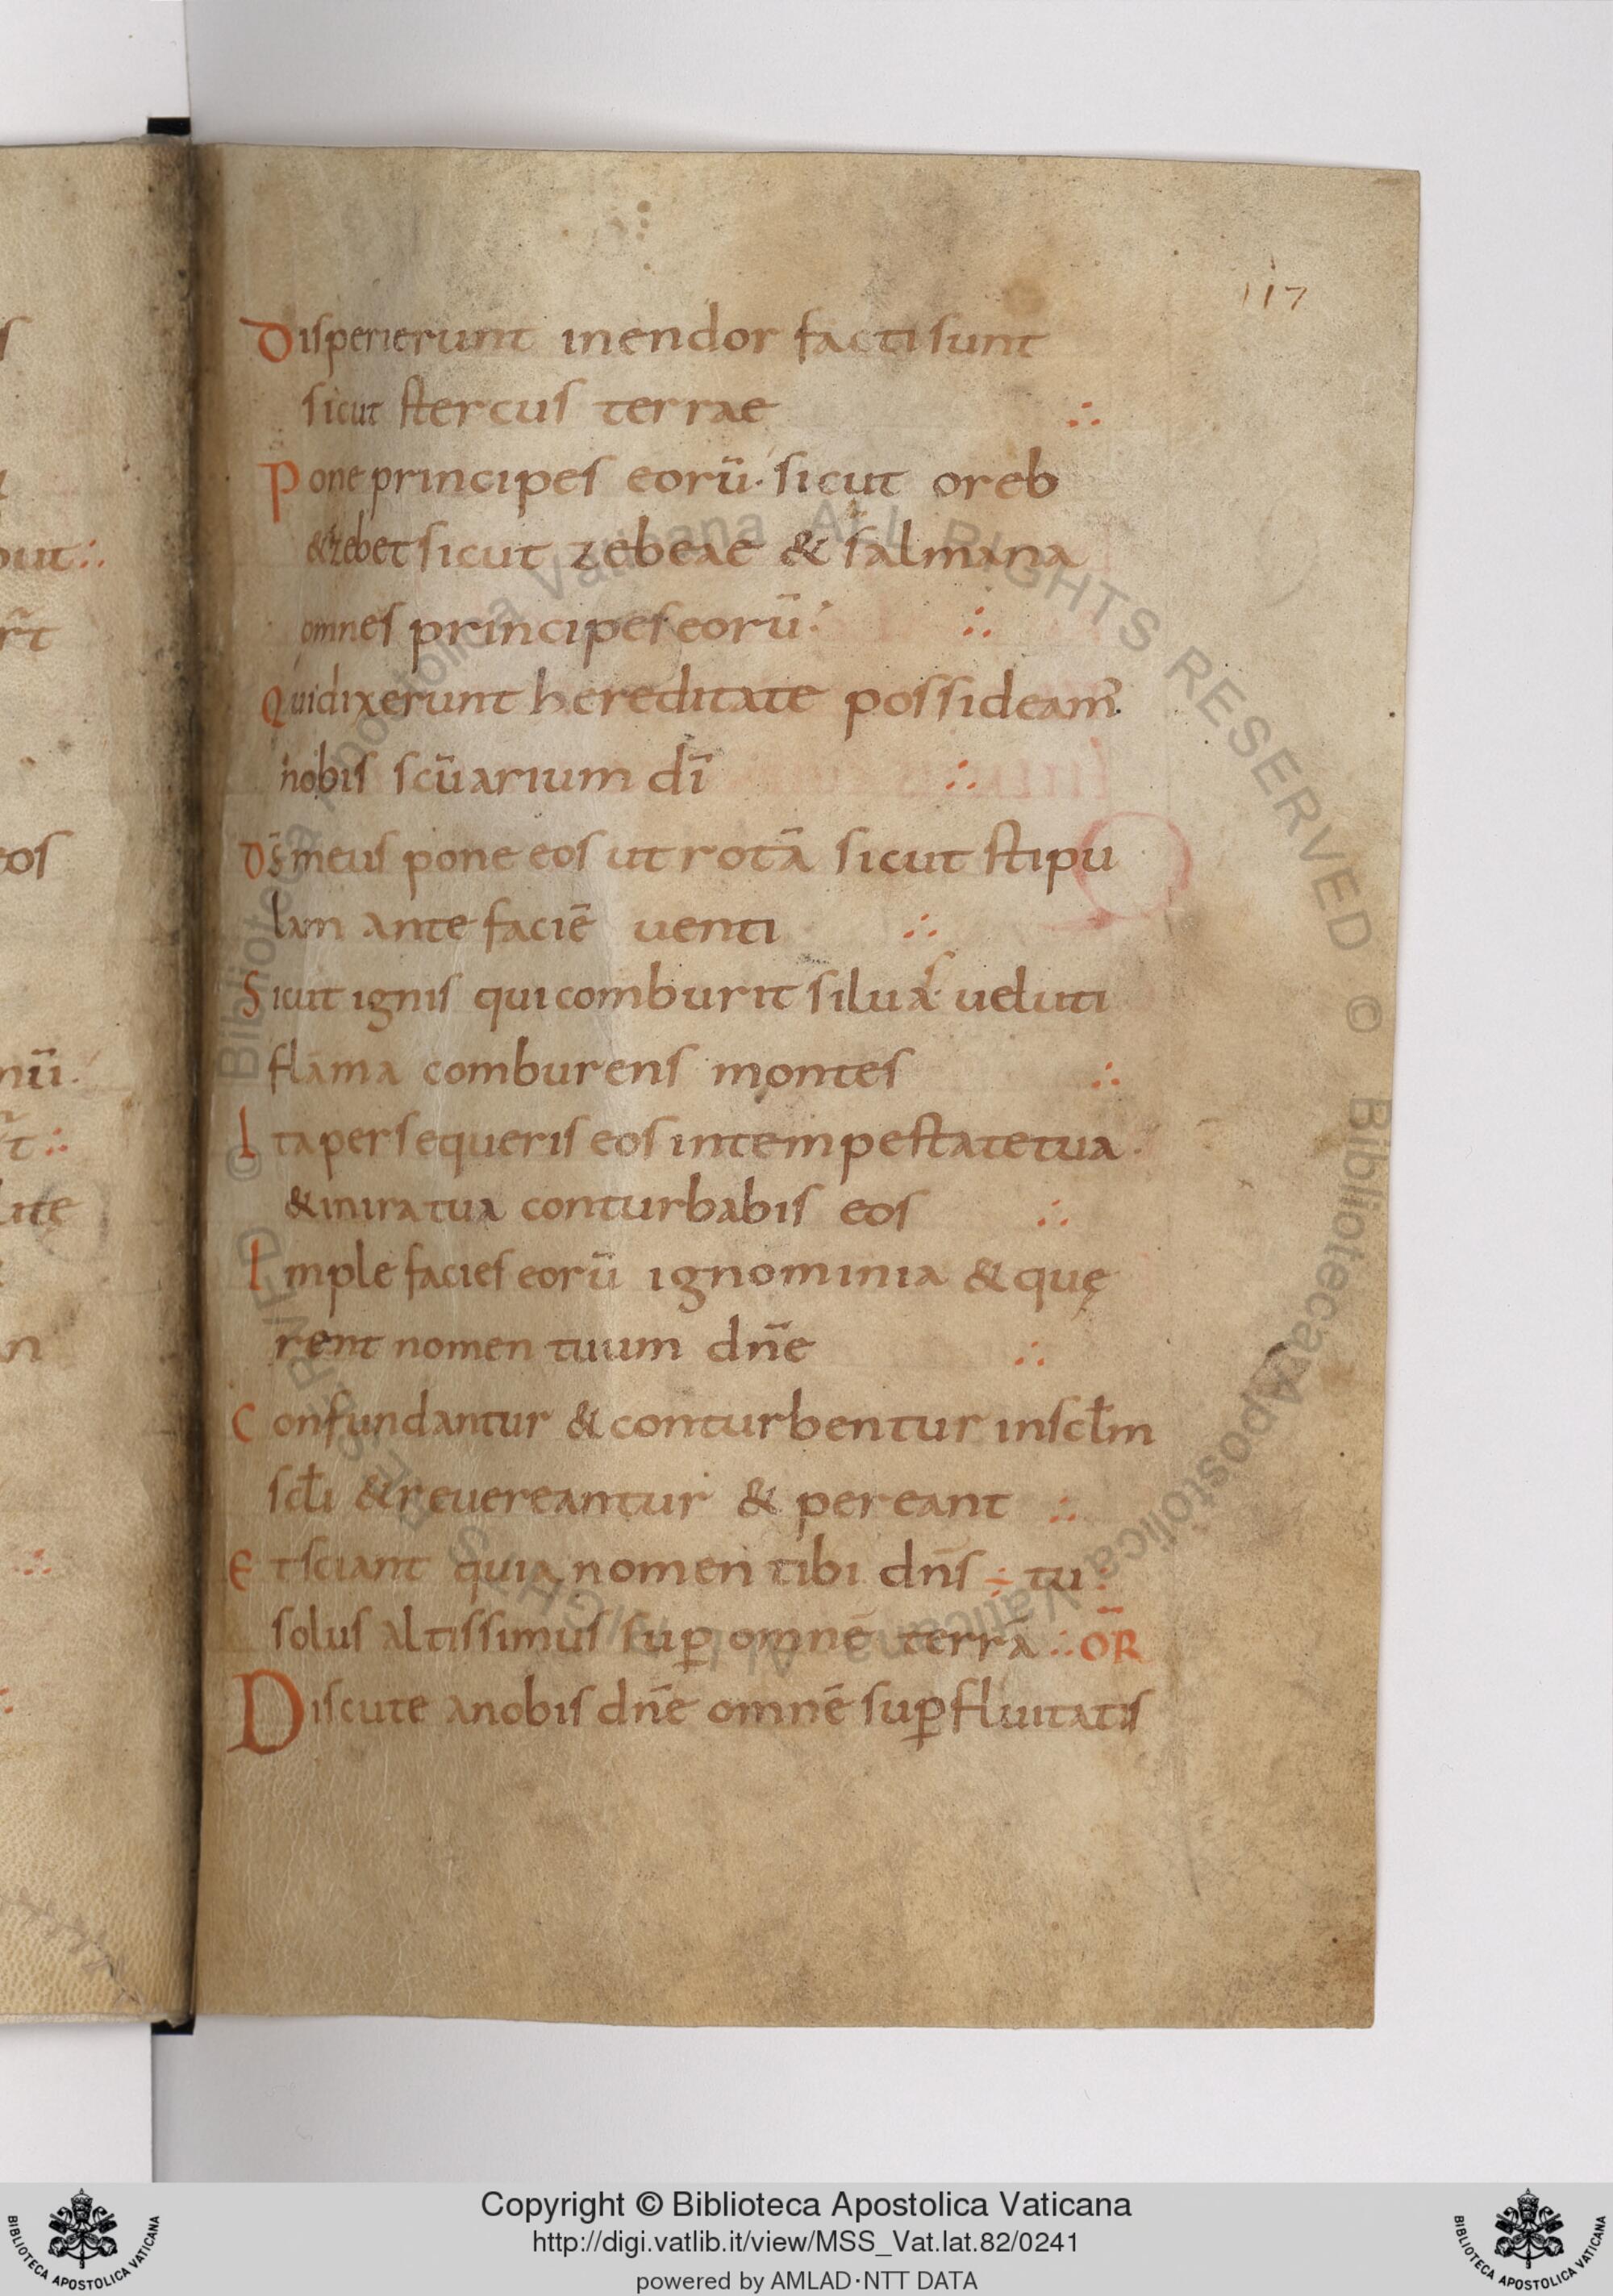 117
Disperierunt inendor facti sunt
sicut stercus terrae ∴
Pone principes eorū· sicut oreb
& zebet sicut zebeae & salmana
omnes principes eorū: ∴
Qui dixerunt hereditate possideam̄
nobis scūarium dī ∴
Ds̄ meus pone eos ut rotā sicut stipu
lam ante faciē uenti ∴
Sicut ignis qui comburit siluas· ueluti
flāma comburens montes ∴
Ita persequeris eos intempestate tua·
& inira tua conturbabis eos ∴
Imple facies eorū ignominia & quę
rent nomen tuum dn̄e ∴
Confundantur & conturbentur insclm̄
scl̄i & reuereantur & pereant ∴
Et sciant quia nomen tibi dn̄s ÷ tu:
solus altissimus sup̱ omnē terrā ∴ OR̄
Discute anobis dn̄e omnē sup̱fluitatis
ut∴
r̃t
eos
nū·
t̃∴
lite
n
Biblioteca Apostolica Vaticana ALL RIGHTS RESERVED © Biblioteca Apostolica Vaticana ALL RIGHTS RESERVED ©
Copyright © Biblioteca Apostolica Vaticana
http://digi.vatlib.it/view/MSS_Vat.lat.82/0241
powered by AMLAD·NTT DATA
BIBLIOTECA APOSTOLICA VATICANA
BIBLIOTECA APOSTOLICA VATICANA